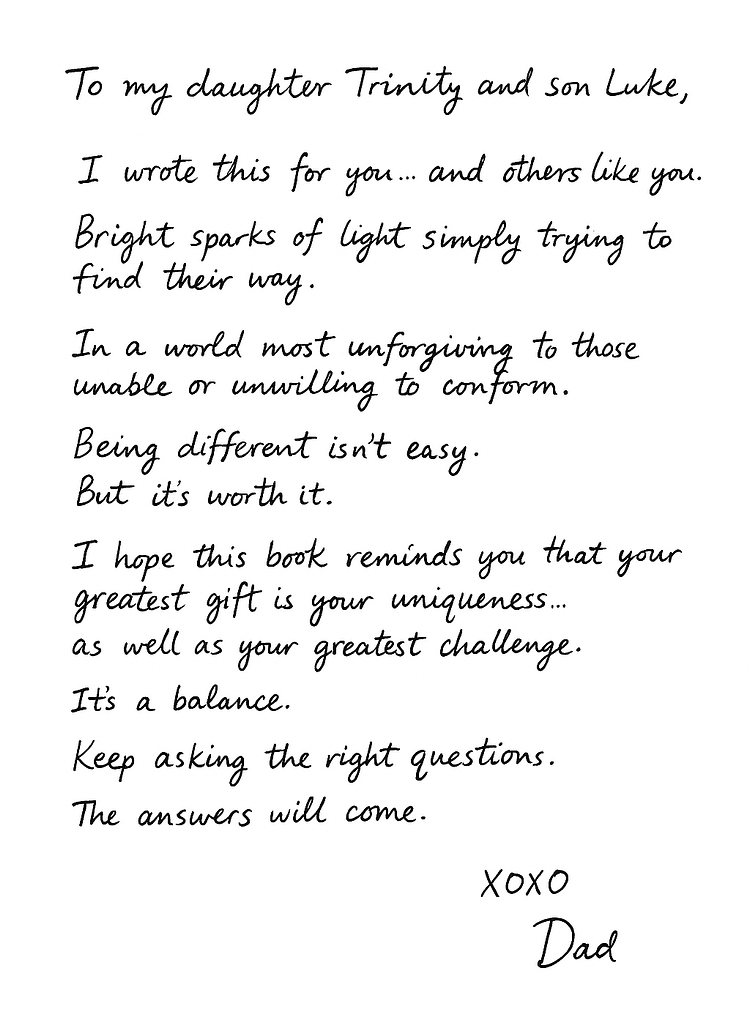 To my daughter Trinity and son Luke,
I wrote this for you... and others like you.
Bright sparks of light simply trying to
find their way.
In a world most unforgiving to those
unable or unwilling to conform.
Being different isn't easy.
But it's worth it.
I hope this book reminds you that your
greatest gift is your uniqueness...
as well as your greatest challenge.
It's a balance.
Keep asking the right questions.
The answers will come.
XOXO
Dad